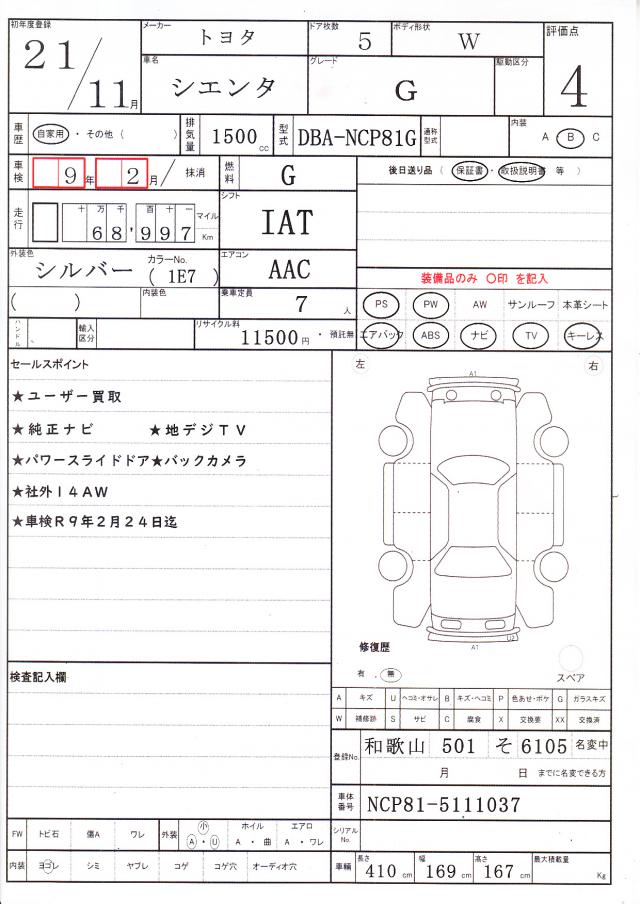 初年度登録 21/11月 メーカー トヨタ ドア枚数 5 ボディ形状 W 評価点 4
車名 シエンタ グレード G 駆動区分
車歴 自家用・その他( ) 排気量 1500cc 型式 DBA-NCP81G 通称型式 内装 A B C
車検 9年 2月 / 抹消 燃料 G 後日送り品( 保証書・取扱説明書 等 )
走行 十 万 千 百 十 一 68,997 マイル Km シフト IAT
外装色 シルバー カラーNo. (1E7) エアコン AAC 装備品のみ 〇印 を記入
( ) 内装色 乗車定員 7人 PS PW AW サンルーフ 本革シート
ハンドル 輸入区分 リサイクル料 11500円・預託無 エアバック ABS ナビ TV キーレス
セールスポイント 左 右
★ユーザー買取 A1
★純正ナビ ★地デジTV
★パワースライドドア★バックカメラ
★社外14AW
★車検R9年2月24日迄
U2
修復歴 A1
有.無 スペア
検査記入欄
A キズ U ヘコミ・オサレ B キズ・ヘコミ P 色あせ・ボケ G ガラスキズ
W 補修跡 S サビ C 腐食 X 交換要 XX 交換済
登録No. 和歌山 501 そ 6105 名変中
月 日 までに名変できる方
車体番号 NCP81-5111037
FW トビ石 傷A ワレ 外装 小 A・U ホイル A・曲 エアロ A・ワレ シリアルNo.
内装 ヨゴレ シミ ヤブレ コゲ コゲ穴 オーディオ穴 車輌 長さ 410cm 幅 169cm 高さ 167cm 最大積載量 Kg